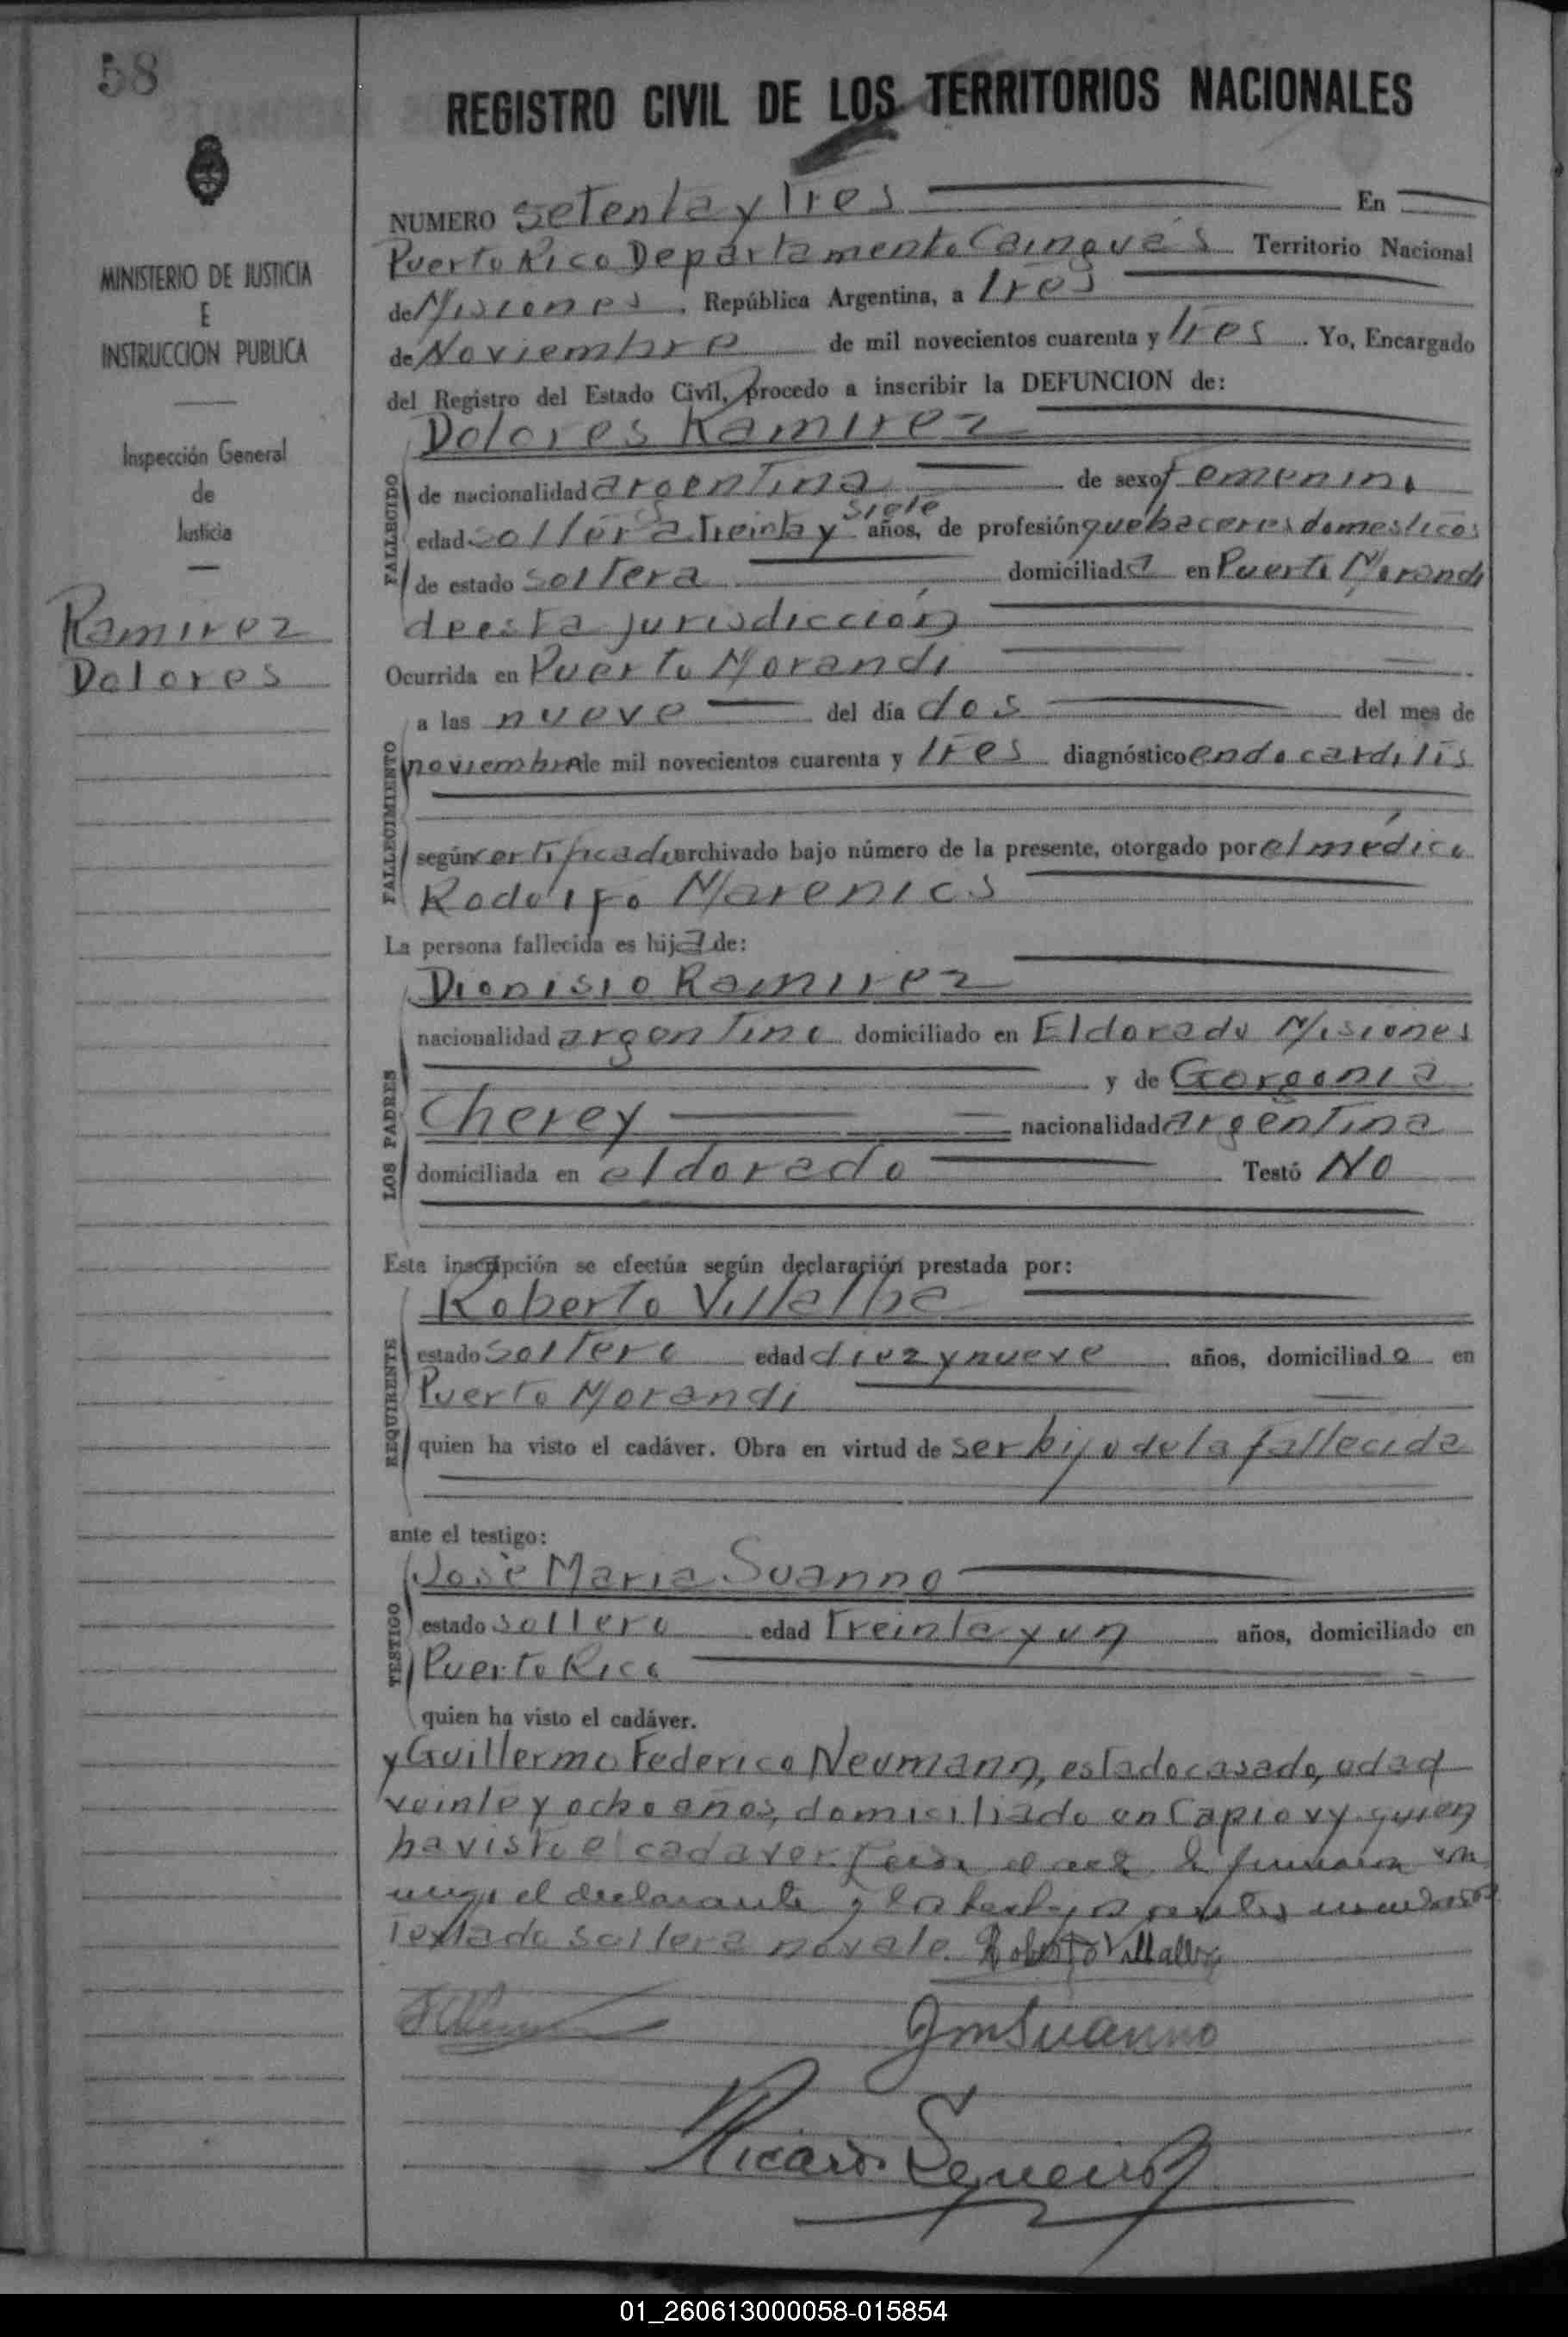 58
MINISTERIO DE JUSTICIA
E
INSTRUCCION PUBLICA
Inspección General
de
Justicia
Ramirez
Dolores
REGISTRO CIVIL DE LOS TERRITORIOS NACIONALES
NUMERO setenta y tres En
Puerto Rico Departamento Cainguás Territorio Nacional
de Misiones, República Argentina, a tres
de Noviembre de mil novecientos cuarenta y tres. Yo, Encargado
del Registro del Estado Civil, procedo a inscribir la DEFUNCION de:
Dolores Ramirez
FALLECIDO
de nacionalidad argentina de sexo femenino
siete
edad soltera treinta y años, de profesión quehaceres domesticos
de estado soltera domiciliada en Puerto Morandi
de esta jurisdicción
Ocurrida en Puerto Morandi
FALLECIMIENTO
a las nueve del día dos del mes de
noviembre de mil novecientos cuarenta y tres diagnóstico endocarditis
según certificado archivado bajo número de la presente, otorgado por el médico
Rodolfo Marenics
La persona fallecida es hija de:
LOS PADRES
Dionisio Ramirez
nacionalidad argentino domiciliado en Eldorado Misiones
y de Gorgonia
Cherey nacionalidad argentina
domiciliada en eldorado Testó No
Esta inscripción se efectúa según declaración prestada por:
REQUIRENTE
Roberto Villalba
estado soltero edad diez y nueve años, domiciliado en
Puerto Morandi
quien ha visto el cadáver. Obra en virtud de ser hijo de la fallecida
ante el testigo:
TESTIGO
José Maria Suanno
estado soltero edad treinta y un años, domiciliado en
Puerto Rico
quien ha visto el cadáver.
y Guillermo Federico Neumann, estado casado, edad
veinte y ocho años, domiciliado en Capiovy quien
ha visto el cadaver. el acta la
el declarante y los testigos
Textado soltera no vale. Roberto Villalba
JmSuanno
Ricardo
01_260613000058-015854